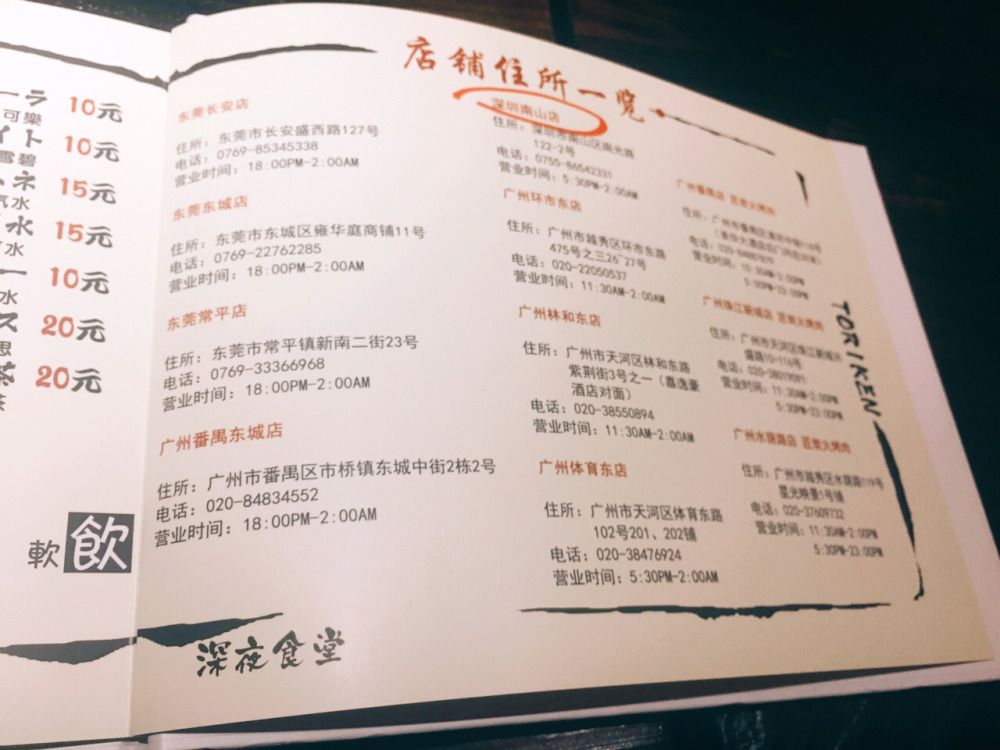 ーラ 10元
可樂
イト 10元
雪碧
ネ 15元
汽水
水 15元
水
ー 10元
水
ス 20元
思
茶 20元
茶
軟
飲
店铺住所一览
东莞长安店
住所：东莞市长安盛西路127号
电话：0769-85345338
营业时间：18:00PM-2:00AM
东莞东城店
住所：东莞市东城区雍华庭商铺11号
电话：0769-22762285
营业时间：18:00PM-2:00AM
东莞常平店
住所：东莞市常平镇新南二街23号
电话：0769-33366968
营业时间：18:00PM-2:00AM
广州番禺东城店
住所：广州市番禺区市桥镇东城中街2栋2号
电话：020-84834552
营业时间：18:00PM-2:00AM
深圳南山店
住所：深圳市南山区南光路
122-2号
电话：0755-86542331
营业时间：5:30PM-2:00AM
广州环市东店
住所：广州市越秀区环市东路
475号之三26~27号
电话：020-22050537
营业时间：11:30AM-2:00AM
广州林和东店
住所：广州市天河区林和东路
紫荆街3号之一（嘉逸豪
酒店对面）
电话：020-38550894
营业时间：11:30AM-2:00AM
广州体育东店
住所：广州市天河区体育东路
102号201、202铺
电话：020-38476924
营业时间：5:30PM-2:00AM
广州番禺店 匠炭火烤肉
住所：广州市番禺区
营业时间：10:30AM-2:00PM
5:00PM-23:00PM
广州珠江新城店 匠炭火烤肉
住所：广州市天河区珠江新城兴
盛路10-116号
电话：020-38019091
营业时间：11:30AM-2:00PM
5:30PM-23:00PM
广州水荫路店 匠炭火烤肉
住所：广州市越秀区水荫路119号
星光映景1号铺
电话：020-37609732
营业时间：11:30AM-2:00PM
5:30PM-23:00PM
TORIKEN
深夜食堂